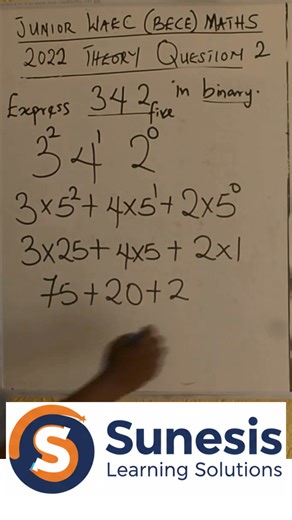 JUNIOR WAEC (BECE) MATHS
2022 THEORY QUESTION 2
Express 342five in binary.
3² 4¹ 2⁰
3×5² + 4×5¹ + 2×5⁰
3×25 + 4×5 + 2×1
75 + 20 + 2
Sunesis
Learning Solutions